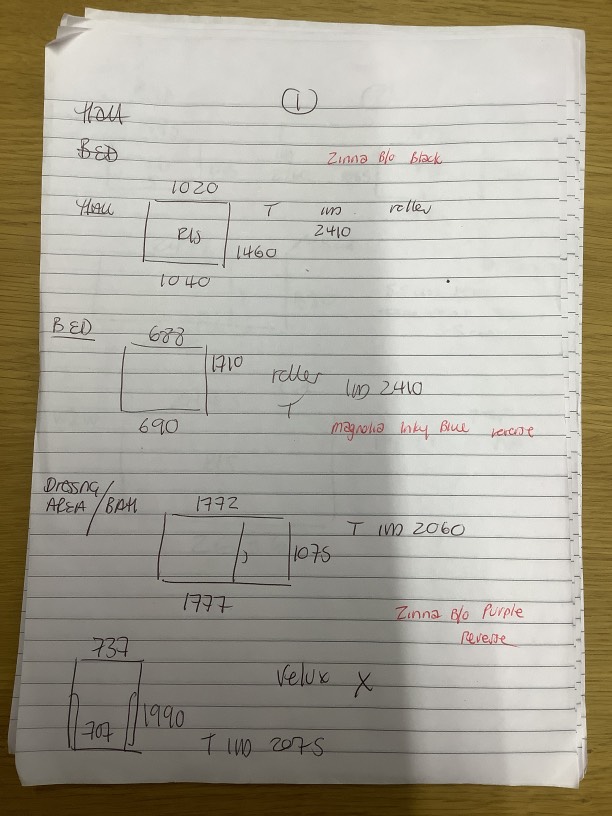 1
Hall
BED
Zinna B/o Black
1020
Hall T IND roller
R/S 2410
1460
1040
BED
688
1710
roller IND 2410
T
690
Magnolia Inky Blue reverse
Dressing
AREA / BATH
1772
T IND 2060
1075
1777
Zinna B/o Purple
Reverse
737
Velux X
1990
707
T IND 2075